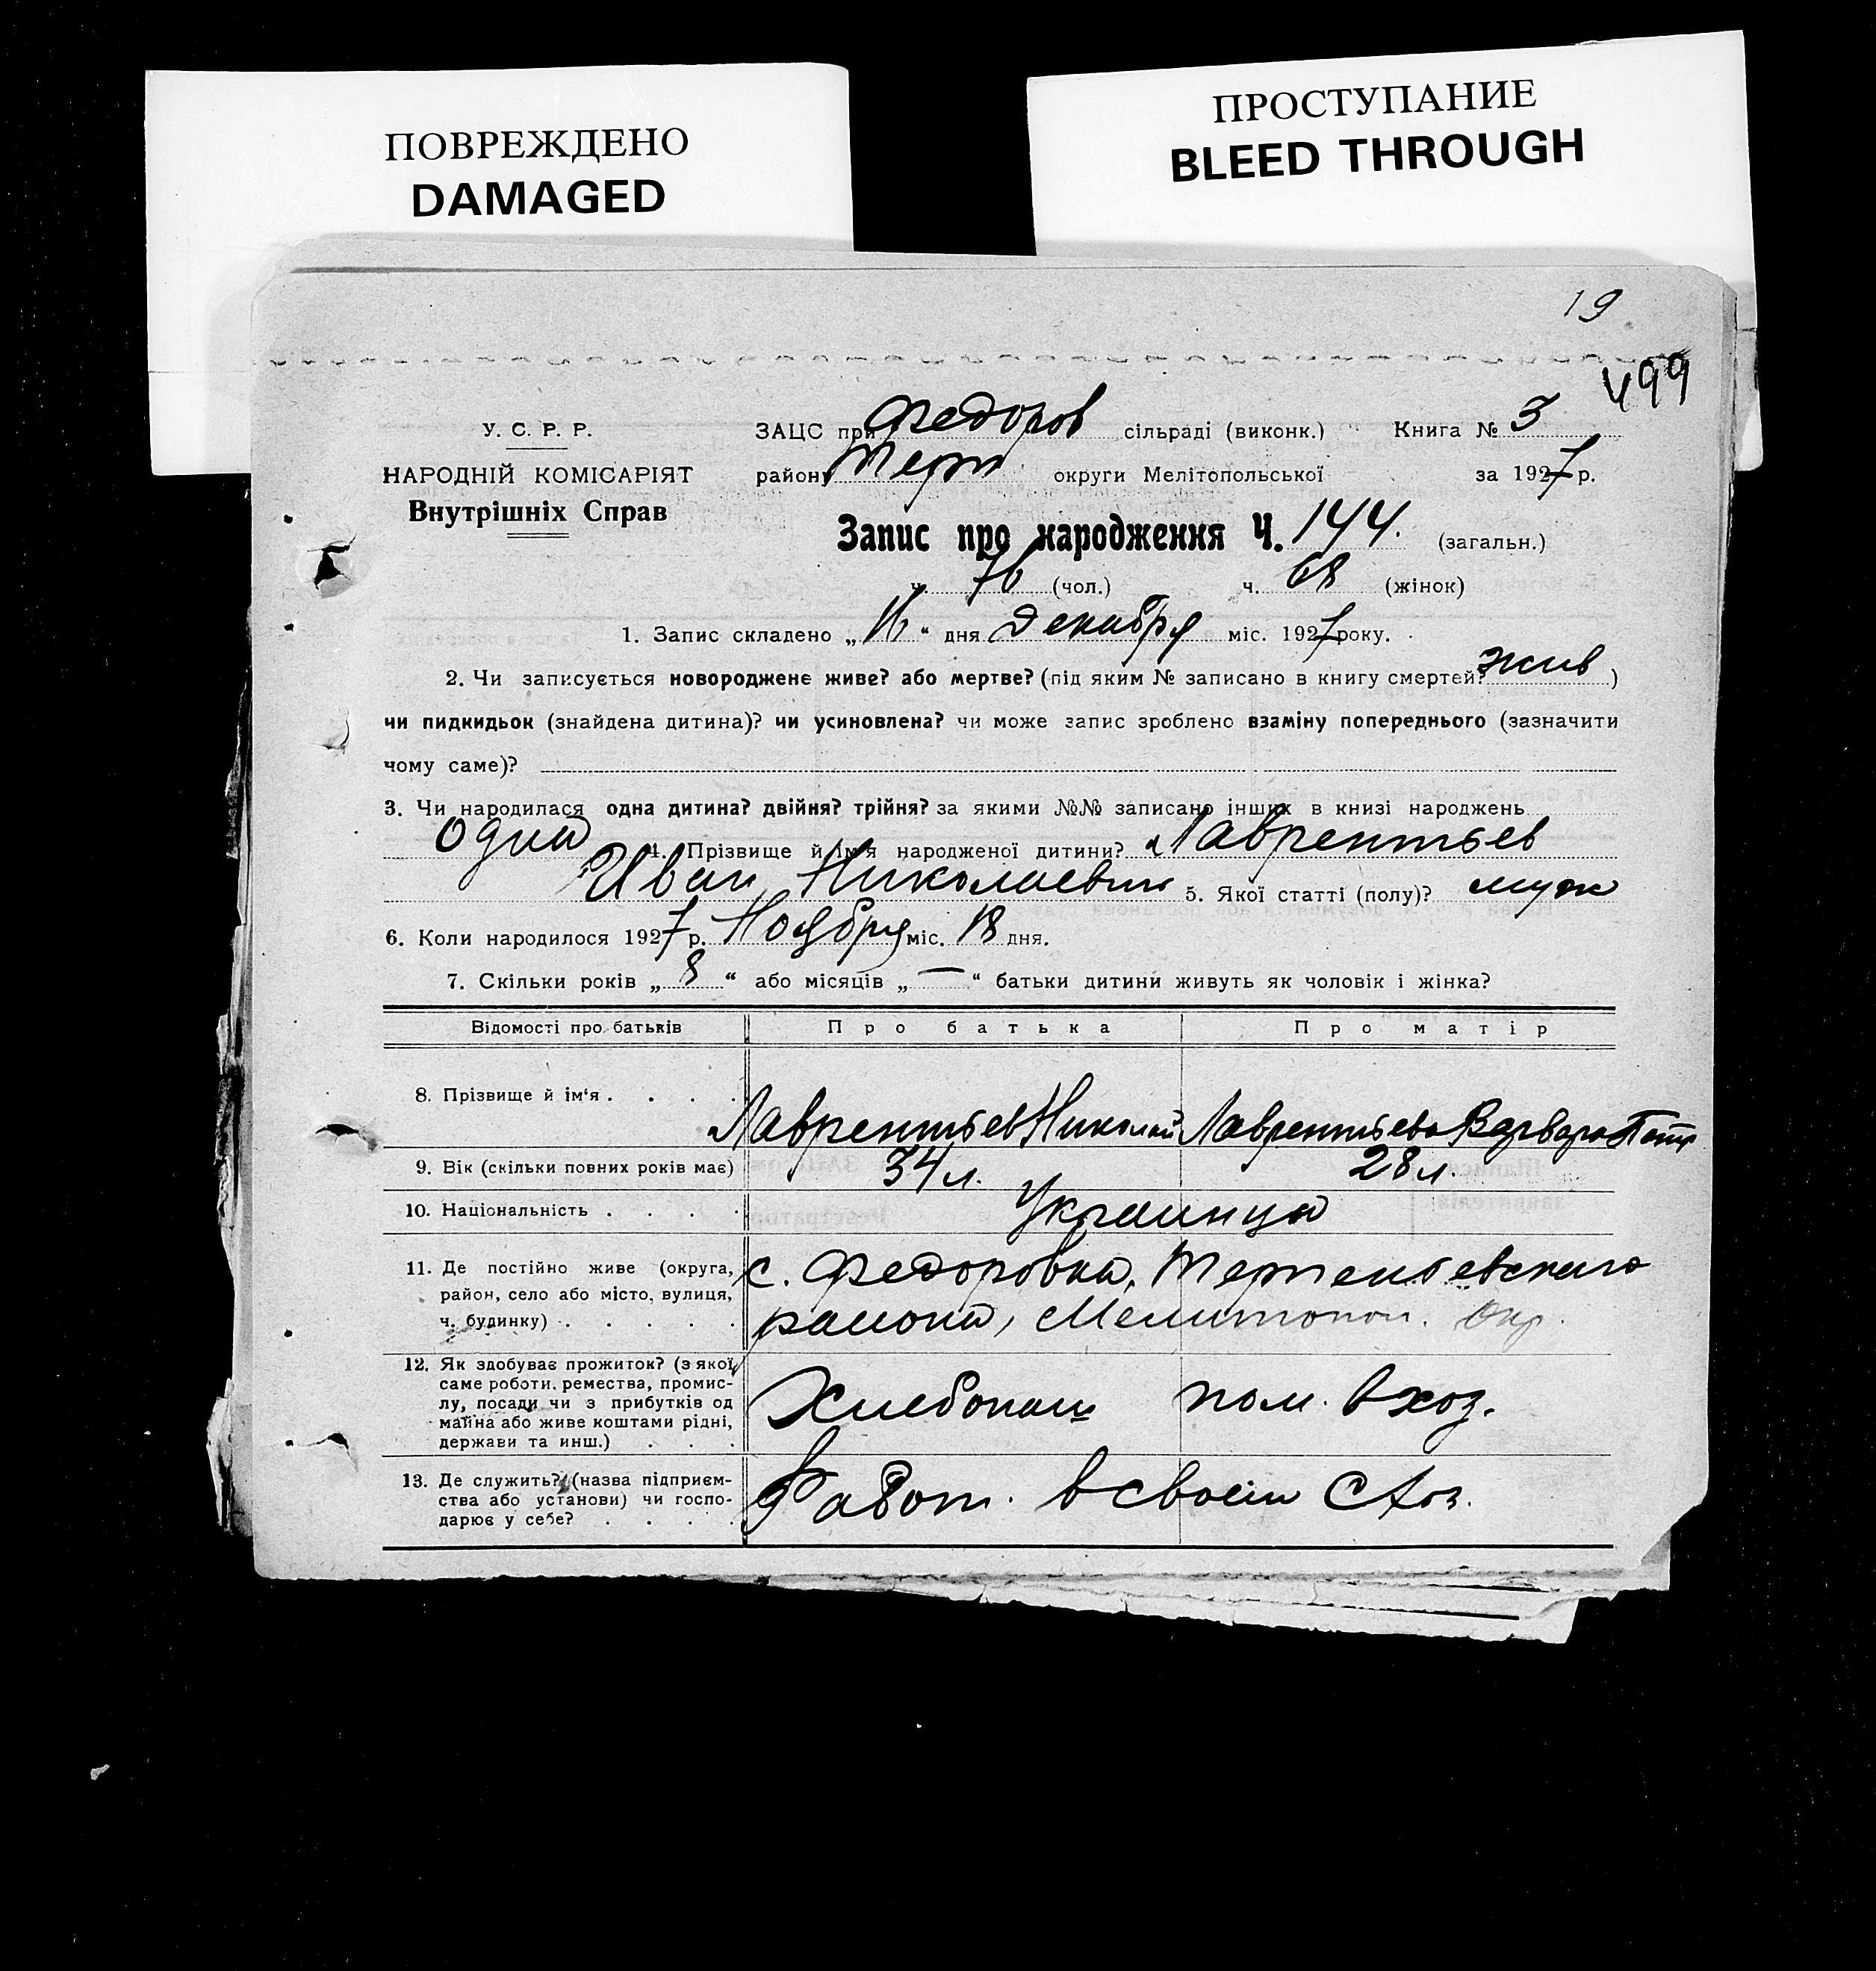 ПОВРЕЖДЕНО
DAMAGED
ПРОСТУПАНИЕ
BLEED THROUGH
19
499
У. С. Р. Р.
НАРОДНІЙ КОМІСАРІЯТ
Внутрішніх Справ
ЗАЦС при Федоров сільраді (виконк.) Книга № 3
району Терп округи Мелітопольської за 1927 р.
Запис про народження Ч. 144. (загальн.)
ч. 76 (чол.) ч. 68 (жінок)
1. Запис складено „16“ дня Декабря міс. 1927 року.
2. Чи записується новороджене живе? або мертве? (під яким № записано в книгу смертей? жив)
чи пидкидьок (знайдена дитина)? чи усиновлена? чи може запис зроблено взаміну попереднього (зазначити
чому саме)?
3. Чи народилася одна дитина? двійня? трійня? за якими №№ записано інших в книзі народжень
одна 4. Прізвище й ім'я народженої дитини? Лаврентьев
Иван Николаевич 5. Якої статті (полу)? муж
6. Коли народилося 1927 р. Ноября міс. 18 дня.
7. Скільки років „8“ або місяців „—“ батьки дитини живуть як чоловік і жінка?
Відомості про батьків Про батька Про матір
8. Прізвище й ім'я . . . . Лаврентьев Николай Лаврентьева Варвара Петр
9. Вік (скільки повних років має) 34 л. 28 л.
10. Національність . . . . Украинцы
11. Де постійно живе (округа, с. Федоровка, Терпеньевского
район, село або місто, вулиця, района, Мелитопол. окр.
ч. будинку) . . . . .
12. Як здобуває прожиток? (з якої
саме роботи, ремества, промис-
лу, посади чи з прибутків од Хлебопаш пом. в хоз.
майна або живе коштами рідні,
держави та инш.) . . .
13. Де служить? (назва підприєм-
ства або установи) чи госпо- Работ. в своем
дарює у себе? . . . .